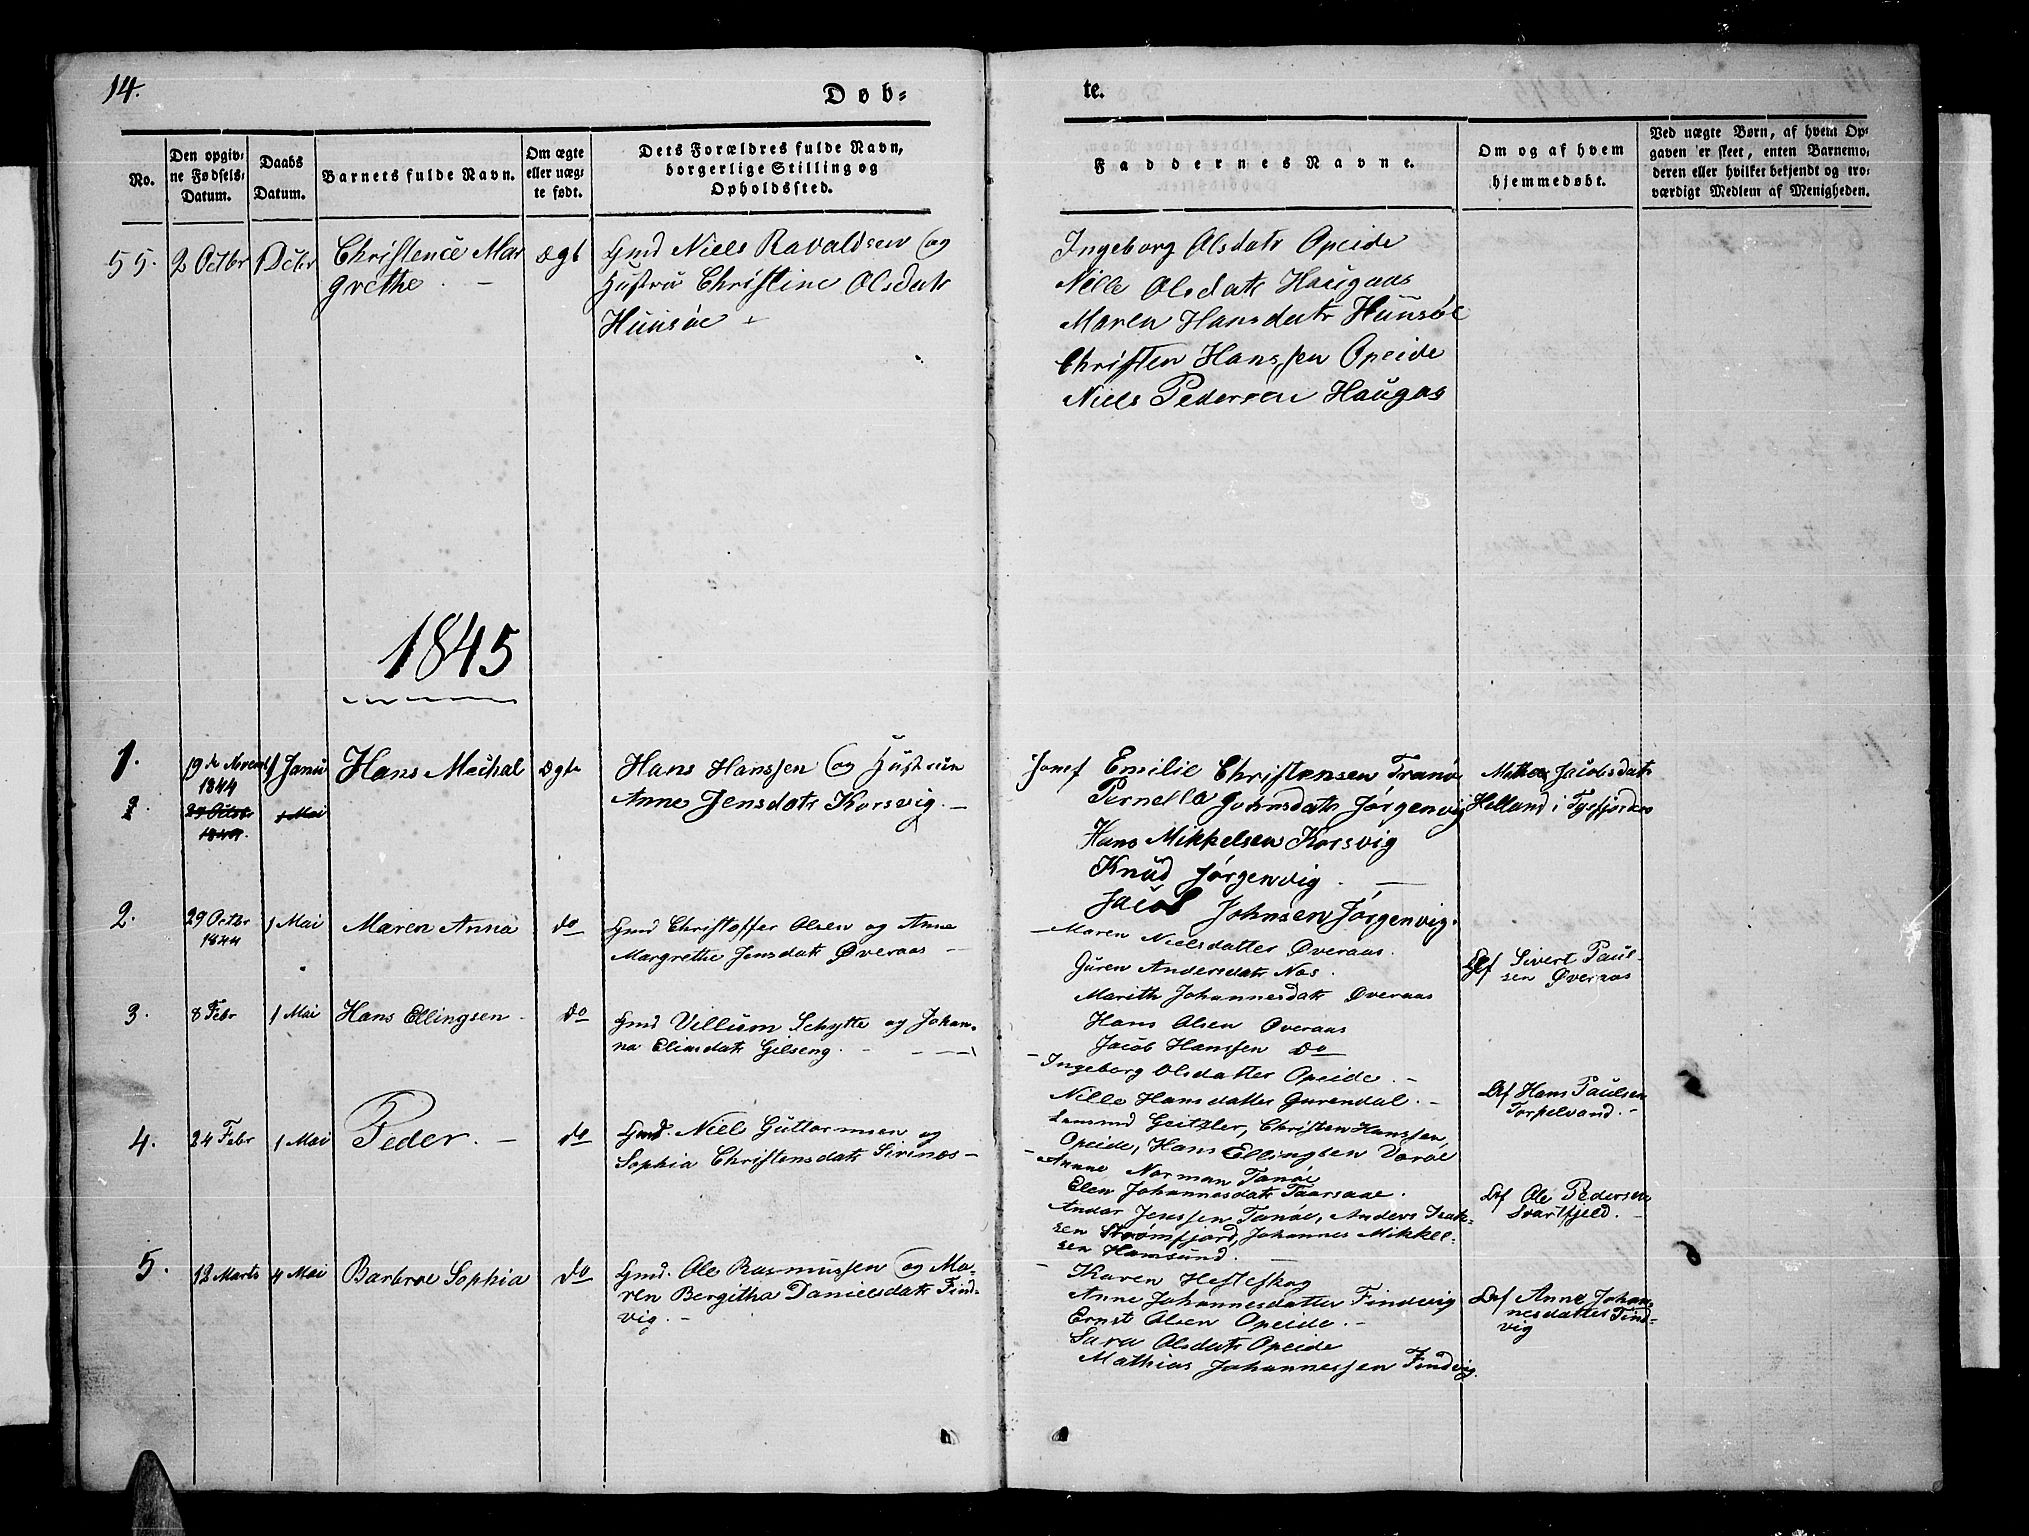 14.
Døb-
te.
No.
Den opgiv-
ne Fødsels-
Datum.
Daabs
Datum.
Barnets fulde Navn.
Om ægte
eller uæg-
te født.
Dets Forældres fulde Navn,
borgerlige Stilling og
Opholdssted.
Faddernes Navne.
Om og af hvem
hjemmedøbt.
Ved uægte Børn, af hvem Op-
gaven er skeet, enten Barnemo-
deren eller hvilket bekjendt og tro-
værdigt Medlem af Menigheden.
55.
2 Octbr
Christence Mar
grethe
ægt
Gmd Niels Ravaldsen og
Hustru Christine Olsdatr
Huusøe
Ingeborg Olsdatr Opeide
Nille Olsdatr Haugaas
Maren Hansdatr Huusøe
Christen Hanssen Opeide
Niels Pedersen Haugas
1845
1.
19 de Novemb
1844
1 Janu
Hans Mechal
ægte
Hans Hanssen og Hustrue
Anne Jensdatr Korsvig
Emilie Christensen Tranø
Pernella Johnsdatr Jørgenvig
Hans Mikkelsen Korsvig
Knud Jørgenvig
Jacob Johnsen Jørgenvig.
Jacobsdatr
Helland i Tysfjorden
2.
29 Octbr
1844
1 Mai
2.
29 Octbr
1844
1 Mai
Maren Anna
do
Gmd Christoffer Olsen og Anne
Margrethe Jensdatr Øveraas
Maren Nielsdatter Øveraas.
Guren Andersdatr Nes.
Marith Johannesdatr Øveraas
Hans Olsen Øveraas
Jacob Hanssen do
Af Sivert Paul-
sen Øveraas
3.
8 Febr
1 Mai
Hans Ellingsen
do
Gmd Villum Schytte og Johan-
na Eliasdatr Gilseng.
Ingeborg Olsdatter Opeide.
Nille Hansdatter Gurendal.
Geitzler, Christen Hanssen,
Opeide, Hans Ellingsen Varøe
Af Hans Paulsen
Torpelvand.
4.
24 Febr
1 Mai
Peder.
do
Gmd. Niels Guttormsen og
Sophia Christensdatr Sirines
Anne Norman Tanøe
Elen Johannesdatr Taarsaae.
Andor Jenssen Tanøe, Anders Isak-
sen Strømfjord, Johannes Mikkel-
sen Hamsund.
Af Ole Pedersen
Svartfjeld.
5.
12 Marts
4 Mai
Barbroe Sophia
do
Gmd. Ole Rasmussen og Ma-
ren Bergitha Danielsdatr Find-
vig.
Karen Hesteskog
Anne Johannesdatter Findvig
Ernst Olsen Opeide.
Sara Olsdatr Opeide
Mathias Johannessen Findvig.
Af Anne Johan-
nesdatter Find-
vig